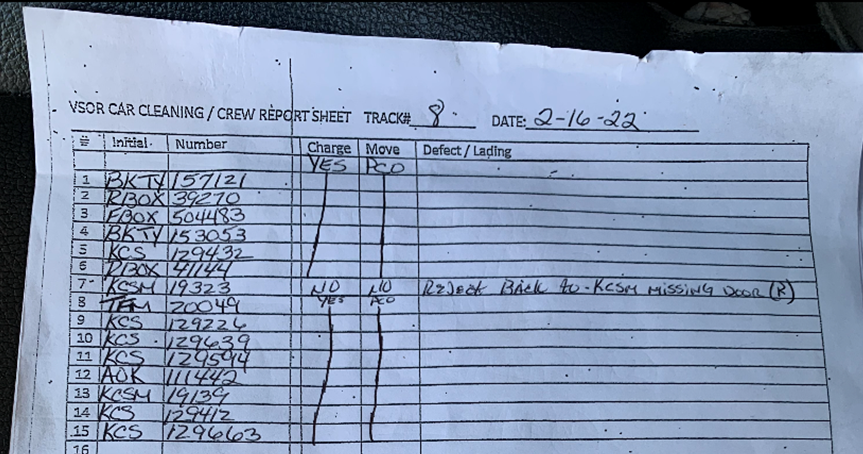 VSOR CAR CLEANING / CREW REPORT SHEET TRACK# 8 DATE: 2-16-22
# Initial Number Charge Move Defect / Lading
YES PCD
1 BKTY 157121
2 RBOX 39270
3 FBOX 504483
4 BKTY 153053
5 KCS 129432
6 RBOX 41144
7 KCSM 19323 NO NO Reject Back to - KCSM MISSING DOOR (R)
8 TFM 20049 YES PCD
9 KCS 129226
10 KCS 129639
11 KCS 129594
12 AOK 111442
13 KCSM 19139
14 KCS 129412
15 KCS 129663
16